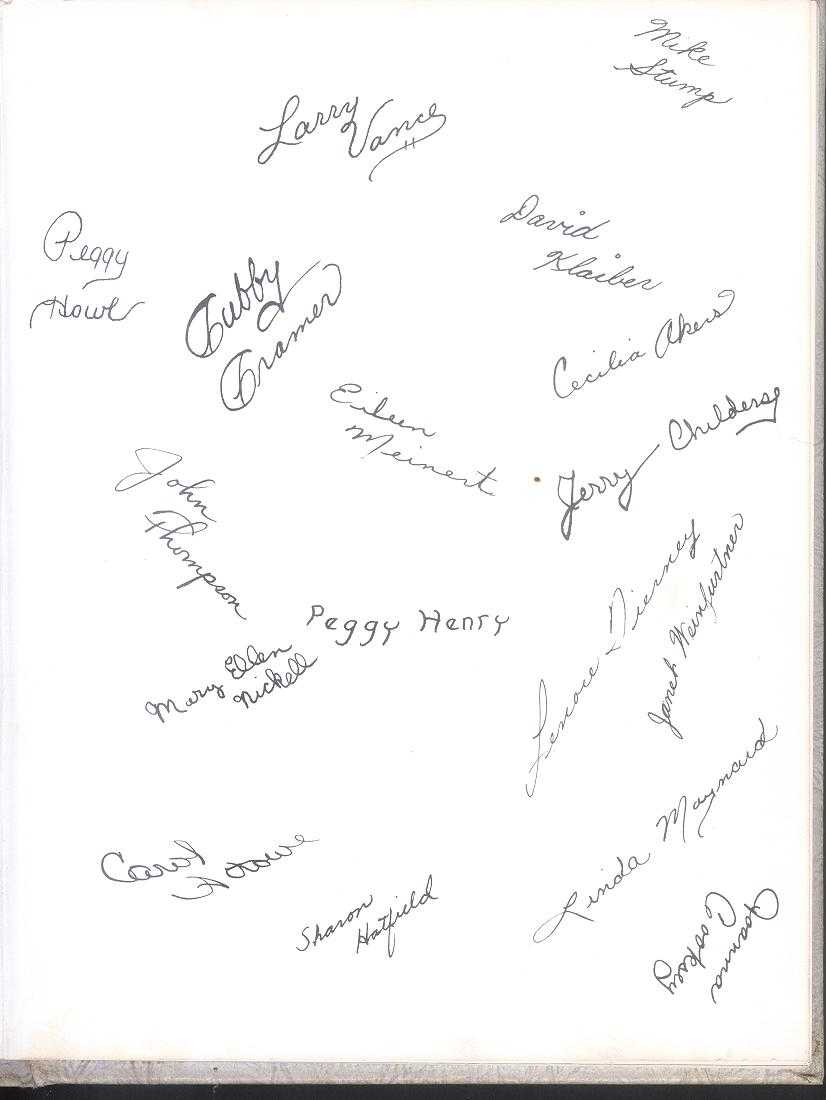 Mike
Stump
Larry
Vance
David
Klaiber
Peggy
Howe
Cubby
Cramer
Cecilia Akers
Eileen
Meinert
Jerry Childers
John
Thompson
Peggy Henry
Lenore
Janet Weinfurtner
Mary Ellen
Nickell
Linda Maynard
Carol
Howe
Sharon
Hatfield
Joanna